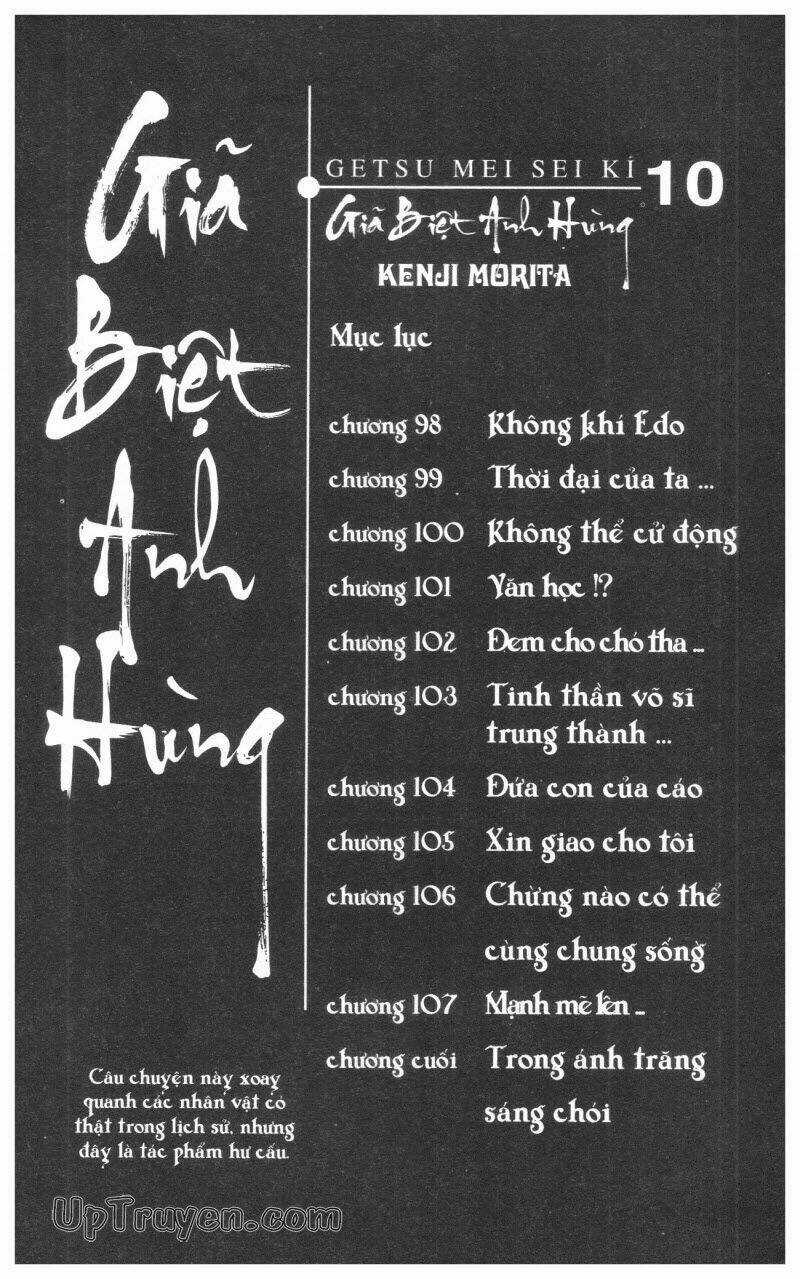 Giã
Biệt
Anh
Hùng
GETSU MEI SEI KÍ 10
Giã Biệt Anh Hùng
KENJI MORITA
Mục lục
chương 98 Không khí Edo
chương 99 Thời đại của ta ...
chương 100 Không thể cử động
chương 101 Văn học !?
chương 102 Đem cho chó tha ...
chương 103 Tinh thần võ sĩ
trung thành ...
chương 104 Đứa con của cáo
chương 105 Xin giao cho tôi
chương 106 Chừng nào có thể
cùng chung sống
chương 107 Mạnh mẽ lên ...
chương cuối Trong ánh trăng
sáng chói
Câu chuyện này xoay
quanh các nhân vật có
thật trong lịch sử, nhưng
đây là tác phẩm hư cấu.
UpTruyen.com